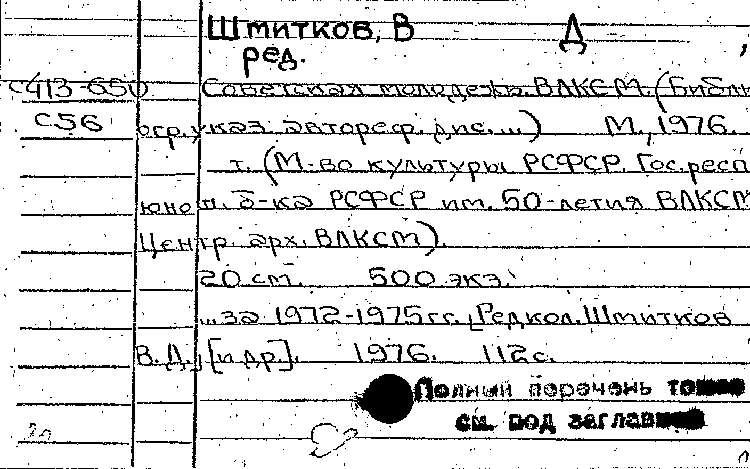 Шмитков, В Д ,
ред.
С413-650 Советская молодежь. ВЛКСМ. (Библи
С56 огр. указ. автореф. дис. ...) М., 1976.
т. (М-во культуры РСФСР. Гос. респ
юнош. б-ка РСФСР им. 50-летия ВЛКСМ
Центр. арх. ВЛКСМ).
20 см. 500 экз.
...за 1972-1975 гг. [Редкол. Шмитков
В. Д., [и др]. 1976. 112 с.
Полный перечень томов
см. под заглавием